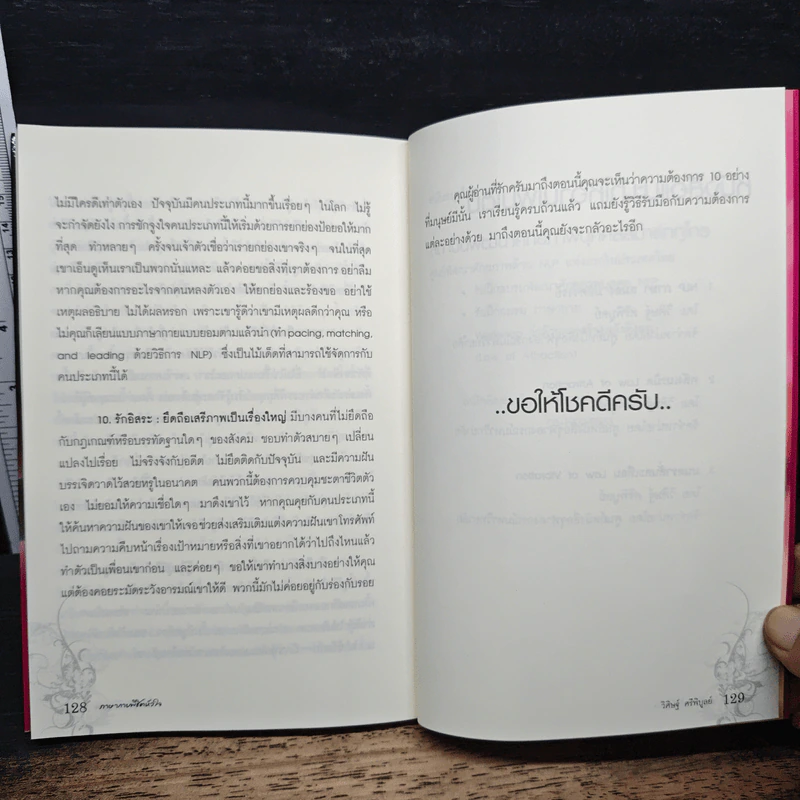 ไม่มีใครดีเท่าตัวเอง ปัจจุบันมีคนประเภทนี้มากขึ้นเรื่อยๆ ในโลก ไม่รู้
จะกำจัดยังไง การชักจูงใจคนประเภทนี้ให้เริ่มด้วยการยกย่องป้อยอให้มาก
ที่สุด ทำหลายๆ ครั้งจนเจ้าตัวเชื่อว่าเรายกย่องเขาจริงๆ จนในที่สุด
เขาเอ็นดูเห็นเราเป็นพวกนั่นแหละ แล้วค่อยขอสิ่งที่เราต้องการ อย่าลืม
หากคุณต้องการอะไรจากคนหลงตัวเอง ให้ยกย่องและร้องขอ อย่าใช้
เหตุผลอธิบาย ไม่ได้ผลหรอก เพราะเขารู้ดีว่าเขามีเหตุผลดีกว่าคุณ หรือ
ไม่คุณก็เลียนแบบภาษากายแบบยอมตามแล้วนำ (ทำ pacing, matching,
and leading ด้วยวิธีการ NLP) ซึ่งเป็นไม้เด็ดที่สามารถใช้จัดการกับ
คนประเภทนี้ได้
10. รักอิสระ : ยึดถือเสรีภาพเป็นเรื่องใหญ่ มีบางคนที่ไม่ยึดถือ
กับกฎเกณฑ์หรือบรรทัดฐานใดๆ ของสังคม ชอบทำตัวสบายๆ เปลี่ยน
แปลงไปเรื่อย ไม่จริงจังกับอดีต ไม่ยึดติดกับปัจจุบัน และมีความฝัน
บรรเจิดวาดไว้สวยหรูในอนาคต คนพวกนี้ต้องการควบคุมชะตาชีวิตตัว
เอง ไม่ยอมให้ความเชื่อใดๆ มาดึงเขาไว้ หากคุณคุยกับคนประเภทนี้
ให้ค้นหาความฝันของเขาให้เจอช่วยส่งเสริมเติมแต่งความฝันเขาโทรศัพท์
ไปถามความคืบหน้าเรื่องเป้าหมายหรือสิ่งที่เขาอยากได้ว่าไปถึงไหนแล้ว
ทำตัวเป็นเพื่อนเขาก่อน และค่อยๆ ขอให้เขาทำบางสิ่งบางอย่างให้คุณ
แต่ต้องคอยระมัดระวังอารมณ์เขาให้ดี พวกนี้มักไม่ค่อยอยู่กับร่องกับรอย
128 ภาษากายพิชิตหัวใจ
คุณผู้อ่านที่รักครับมาถึงตอนนี้คุณจะเห็นว่าความต้องการ 10 อย่าง
ที่มนุษย์มีนั้น เราเรียนรู้ครบถ้วนแล้ว แถมยังรู้วิธีรับมือกับความต้องการ
แต่ละอย่างด้วย มาถึงตอนนี้คุณยังจะกลัวอะไรอีก
..ขอให้โชคดีครับ..
วิศิษฐ์ ศรีพิบูลย์ 129